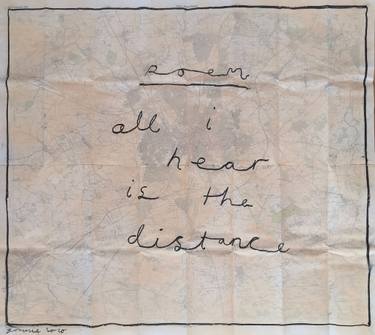 poem
all i
hear
is the
distance